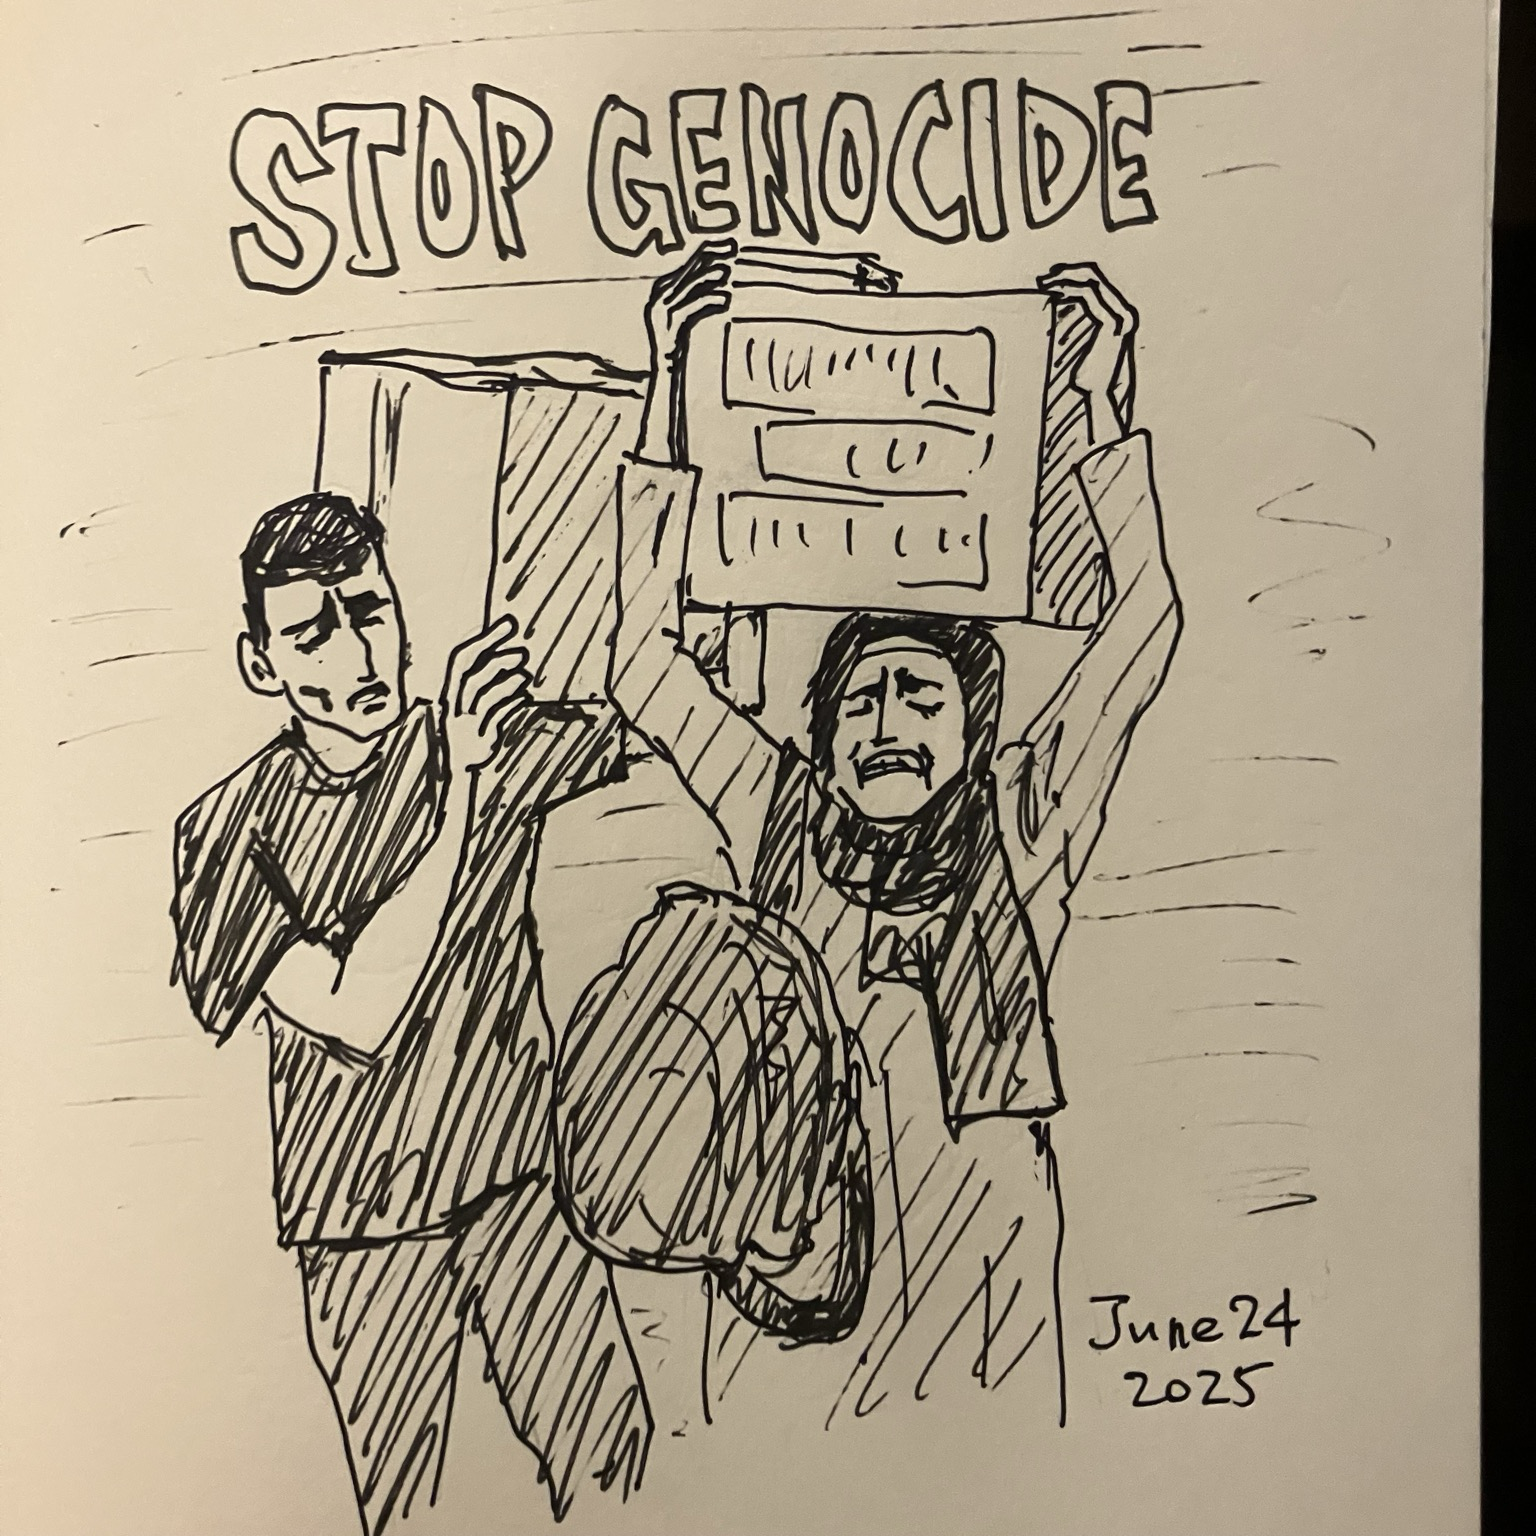 STOP GENOCIDE
June 24
2025